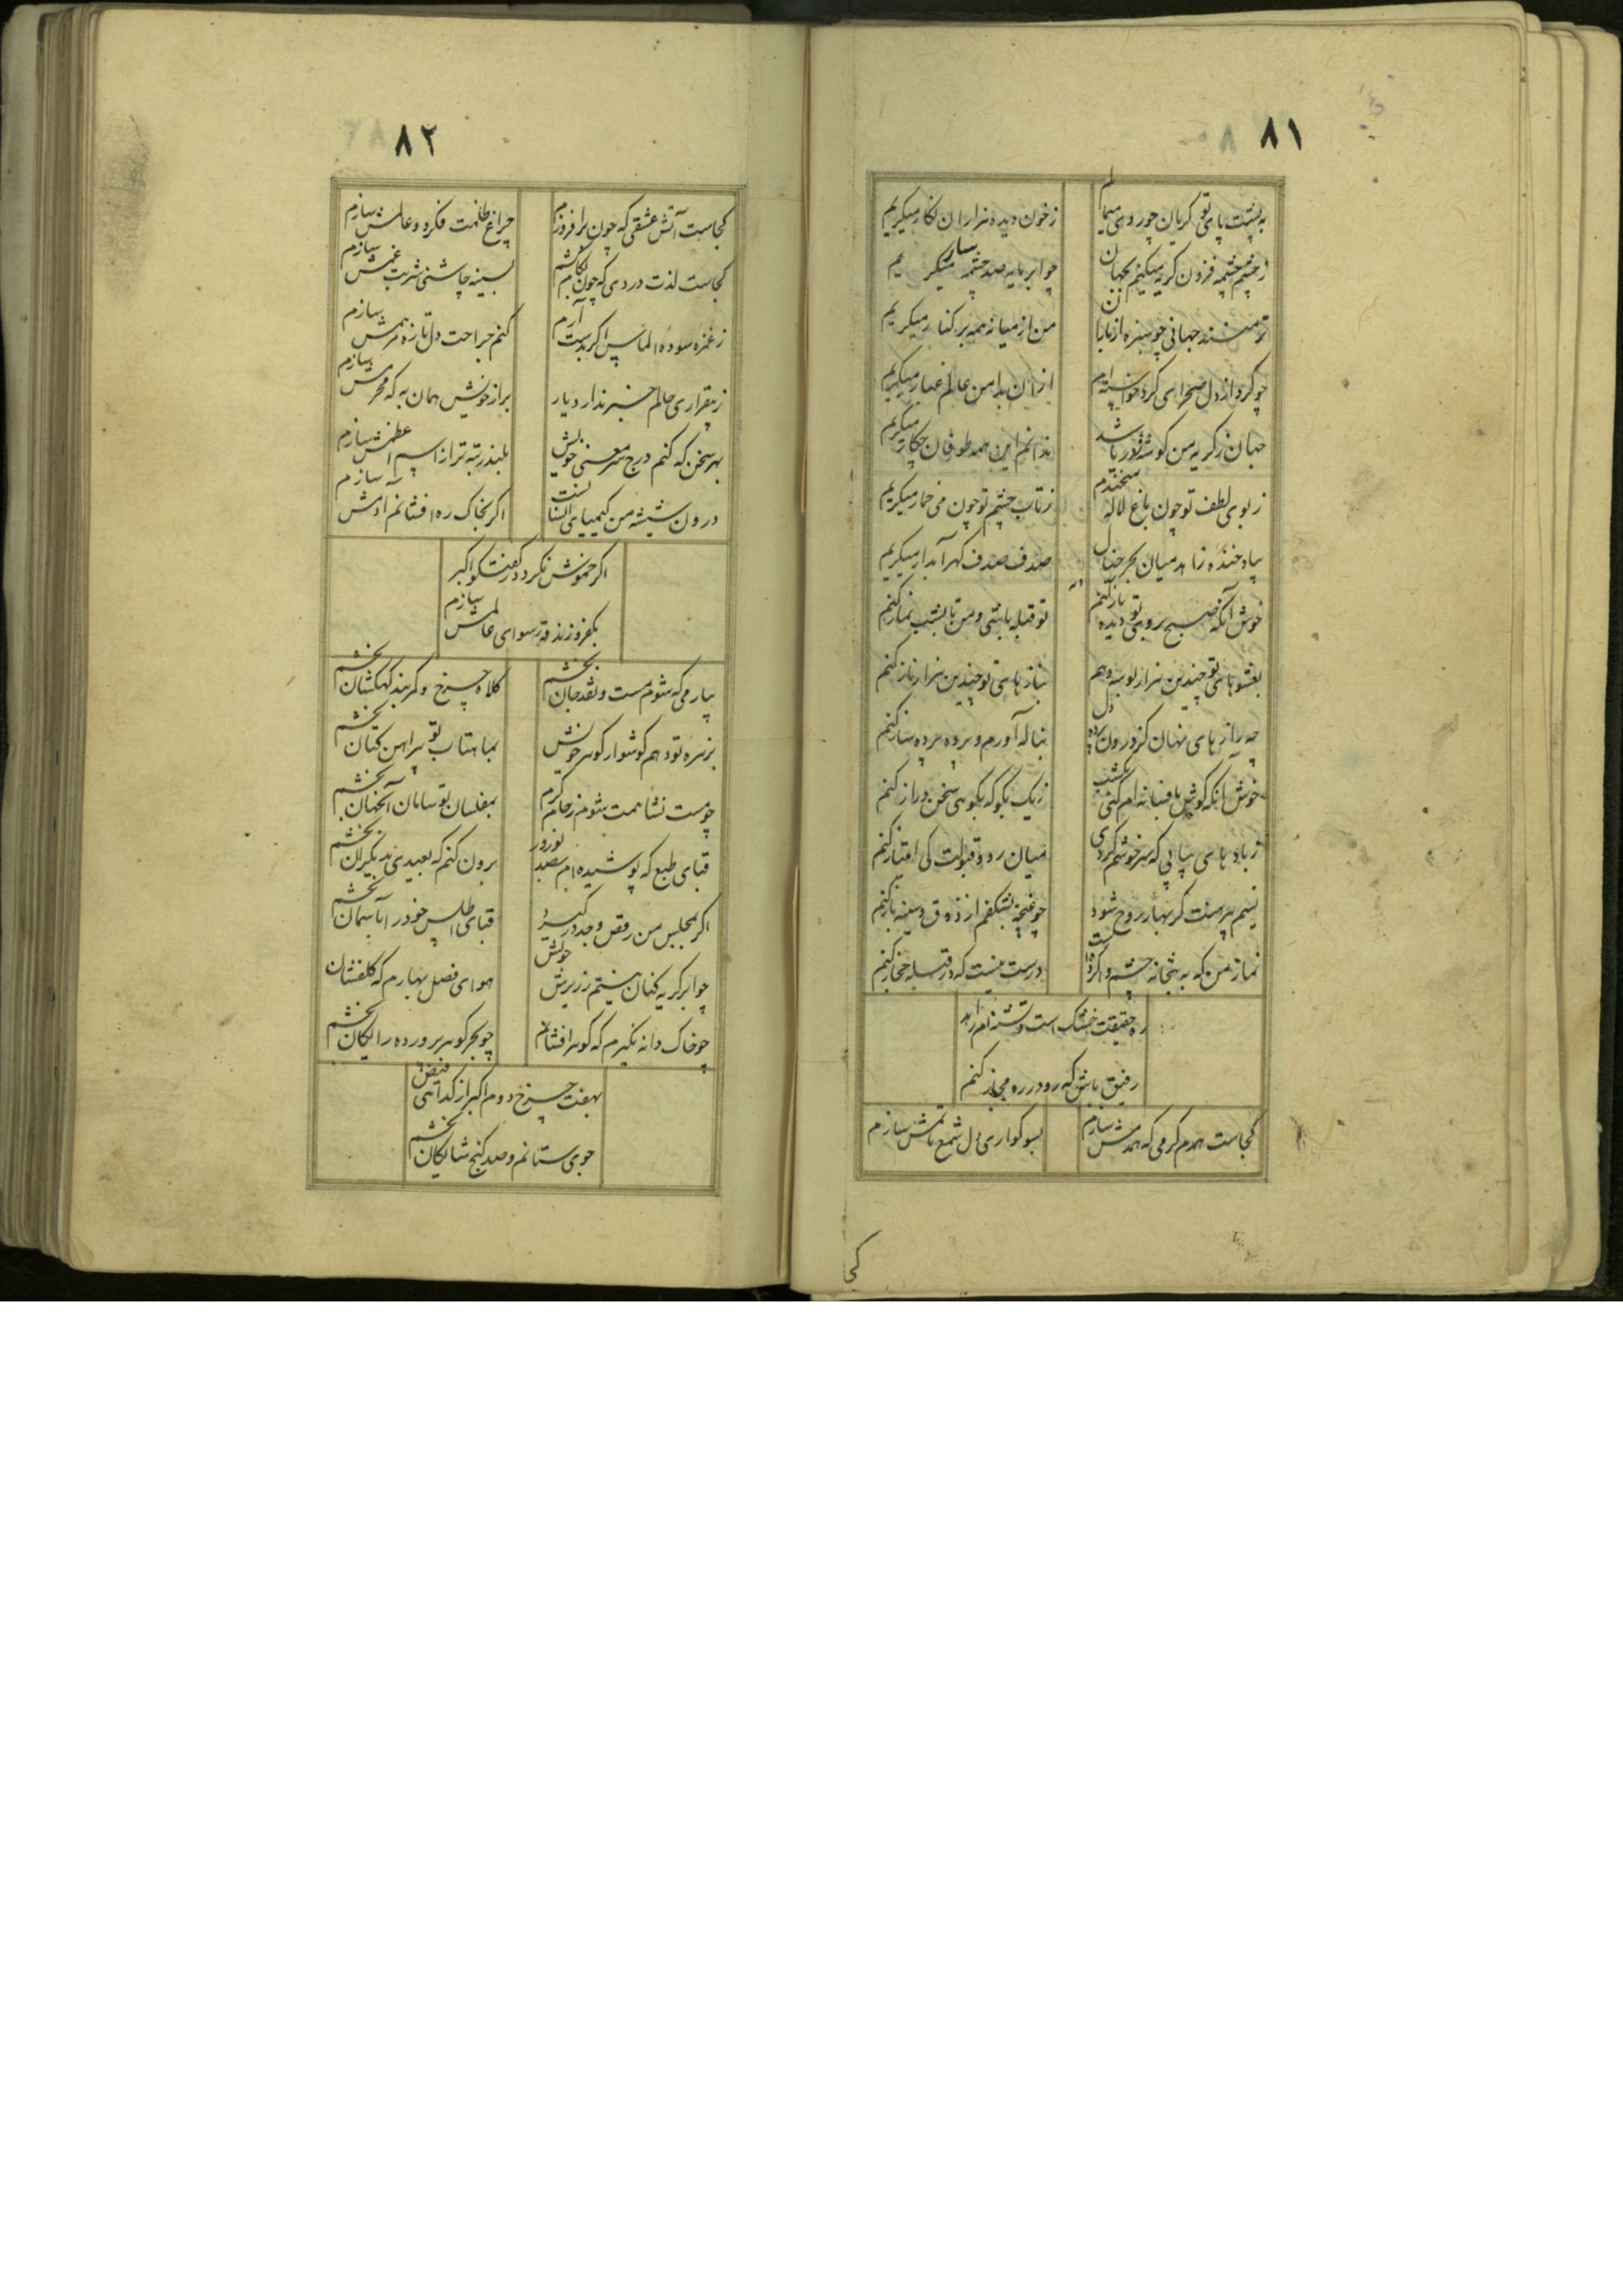 ۸۱
به پشت پای تو گریان چو روی میمالم
ز خون دیده هزاران نگار میگریم
ز چشم چشمه فزون گریه میکنم بجهان
چو ابر مایه صد چشمه سار میگریم
من از میانه همه بر کنار میگریم
ازان بدامن عالم غبار میگریم
جهان ز گریه من گوشه باشد
ندانم این همه طوفان چکار میگریم
ز بوی لطف تو چون باغ لاله میخندم
ز تاب چشم تو چون می خمار میگریم
بیاد خنده زاهد میان بحر خیال
صدف صدف گهر آبدار میگریم
خوش آنکه صبح بروی تو دیده باز کنم
تو قبله باشی و من تا بشب نماز کنم
بناز های تو چندین هزار ناز کنم
چه راز های نهان کز درون پرده دل
بناله آورم و پرده پرده ساز کنم
خوش آنکه گوش بافسانه ام کنی یکشب
ز یک بگو که بگویی سخن دراز کنم
ز بادهای پیاپی که سر خوشم کردی
میان رد و قبولت کی امتیاز کنم
نسیم پیرهنت گر بهار روح شود
چو غنچه بشکفم از ذوق و سینه باز کنم
نماز من که به بتخانه چشم وا کرده است
درست نیست که در قبله حجاز کنم
ره حقیقت خشک است و تشنه ام زاهد
رفیق باش که رو در ره مجاز کنم
کجاست همدم گرمی که همدمش سازم
بسوگواری دل شمع ماتمش سازم
کجا
۸۲
کجاست آتش عشقی که چون برافروزم
چراغ ظلمت فکر دو عالمش سازم
کجاست لذت دردی که چون بکام کشم
بسینه چاشنی شربت غمش سازم
ز غمزه سوده الماس اگر بدست آرم
کنم جراحت دل تازه مرهمش سازم
ز بیقراری حالم خبر ندارد یار
براز خویش همان به که محرمش سازم
بهر سخن که کنم درج سر معنی خویش
بلند رتبه تر از اسم اعظمش سازم
درون شیشه من کیمیای انسانست
اگر بخاک ره افشانم آدمش سازم
اگر خموش نگردد ز گفتگو اکبر
بکفر و زندقه رسوای عالمش سازم
بیار می که شوم مست و نقد جان بخشم
کلاه چرخ و کمربند کهکشان بخشم
بزهره تو دهم گوشوار گوهر خویش
بماهتاب تو پیراهن کتان بخشم
چو مست نشاء همت شوم ز جام کرم
بمفلسان تو سامان آنجهان بخشم
قبای طبع که پوشیده ام بصد نوروز
برون کنم که بعیدی بدیگران بخشم
اگر بمجلس من رقص وجد در گیرد
قبای اطلس خود را بآسمان بخشم
چو ابر گریه کنان نیستم ز ریزش خویش
هوای فصل بهارم که گلفشان بخشم
چو خاک دانه نگیرم که گوهر افشانم
چو بحر گوهر پرورده رایگان بخشم
بهفت چرخ دوم اکبر از گدائی فیض
جوی ستانم و صد گنج شایگان بخشم